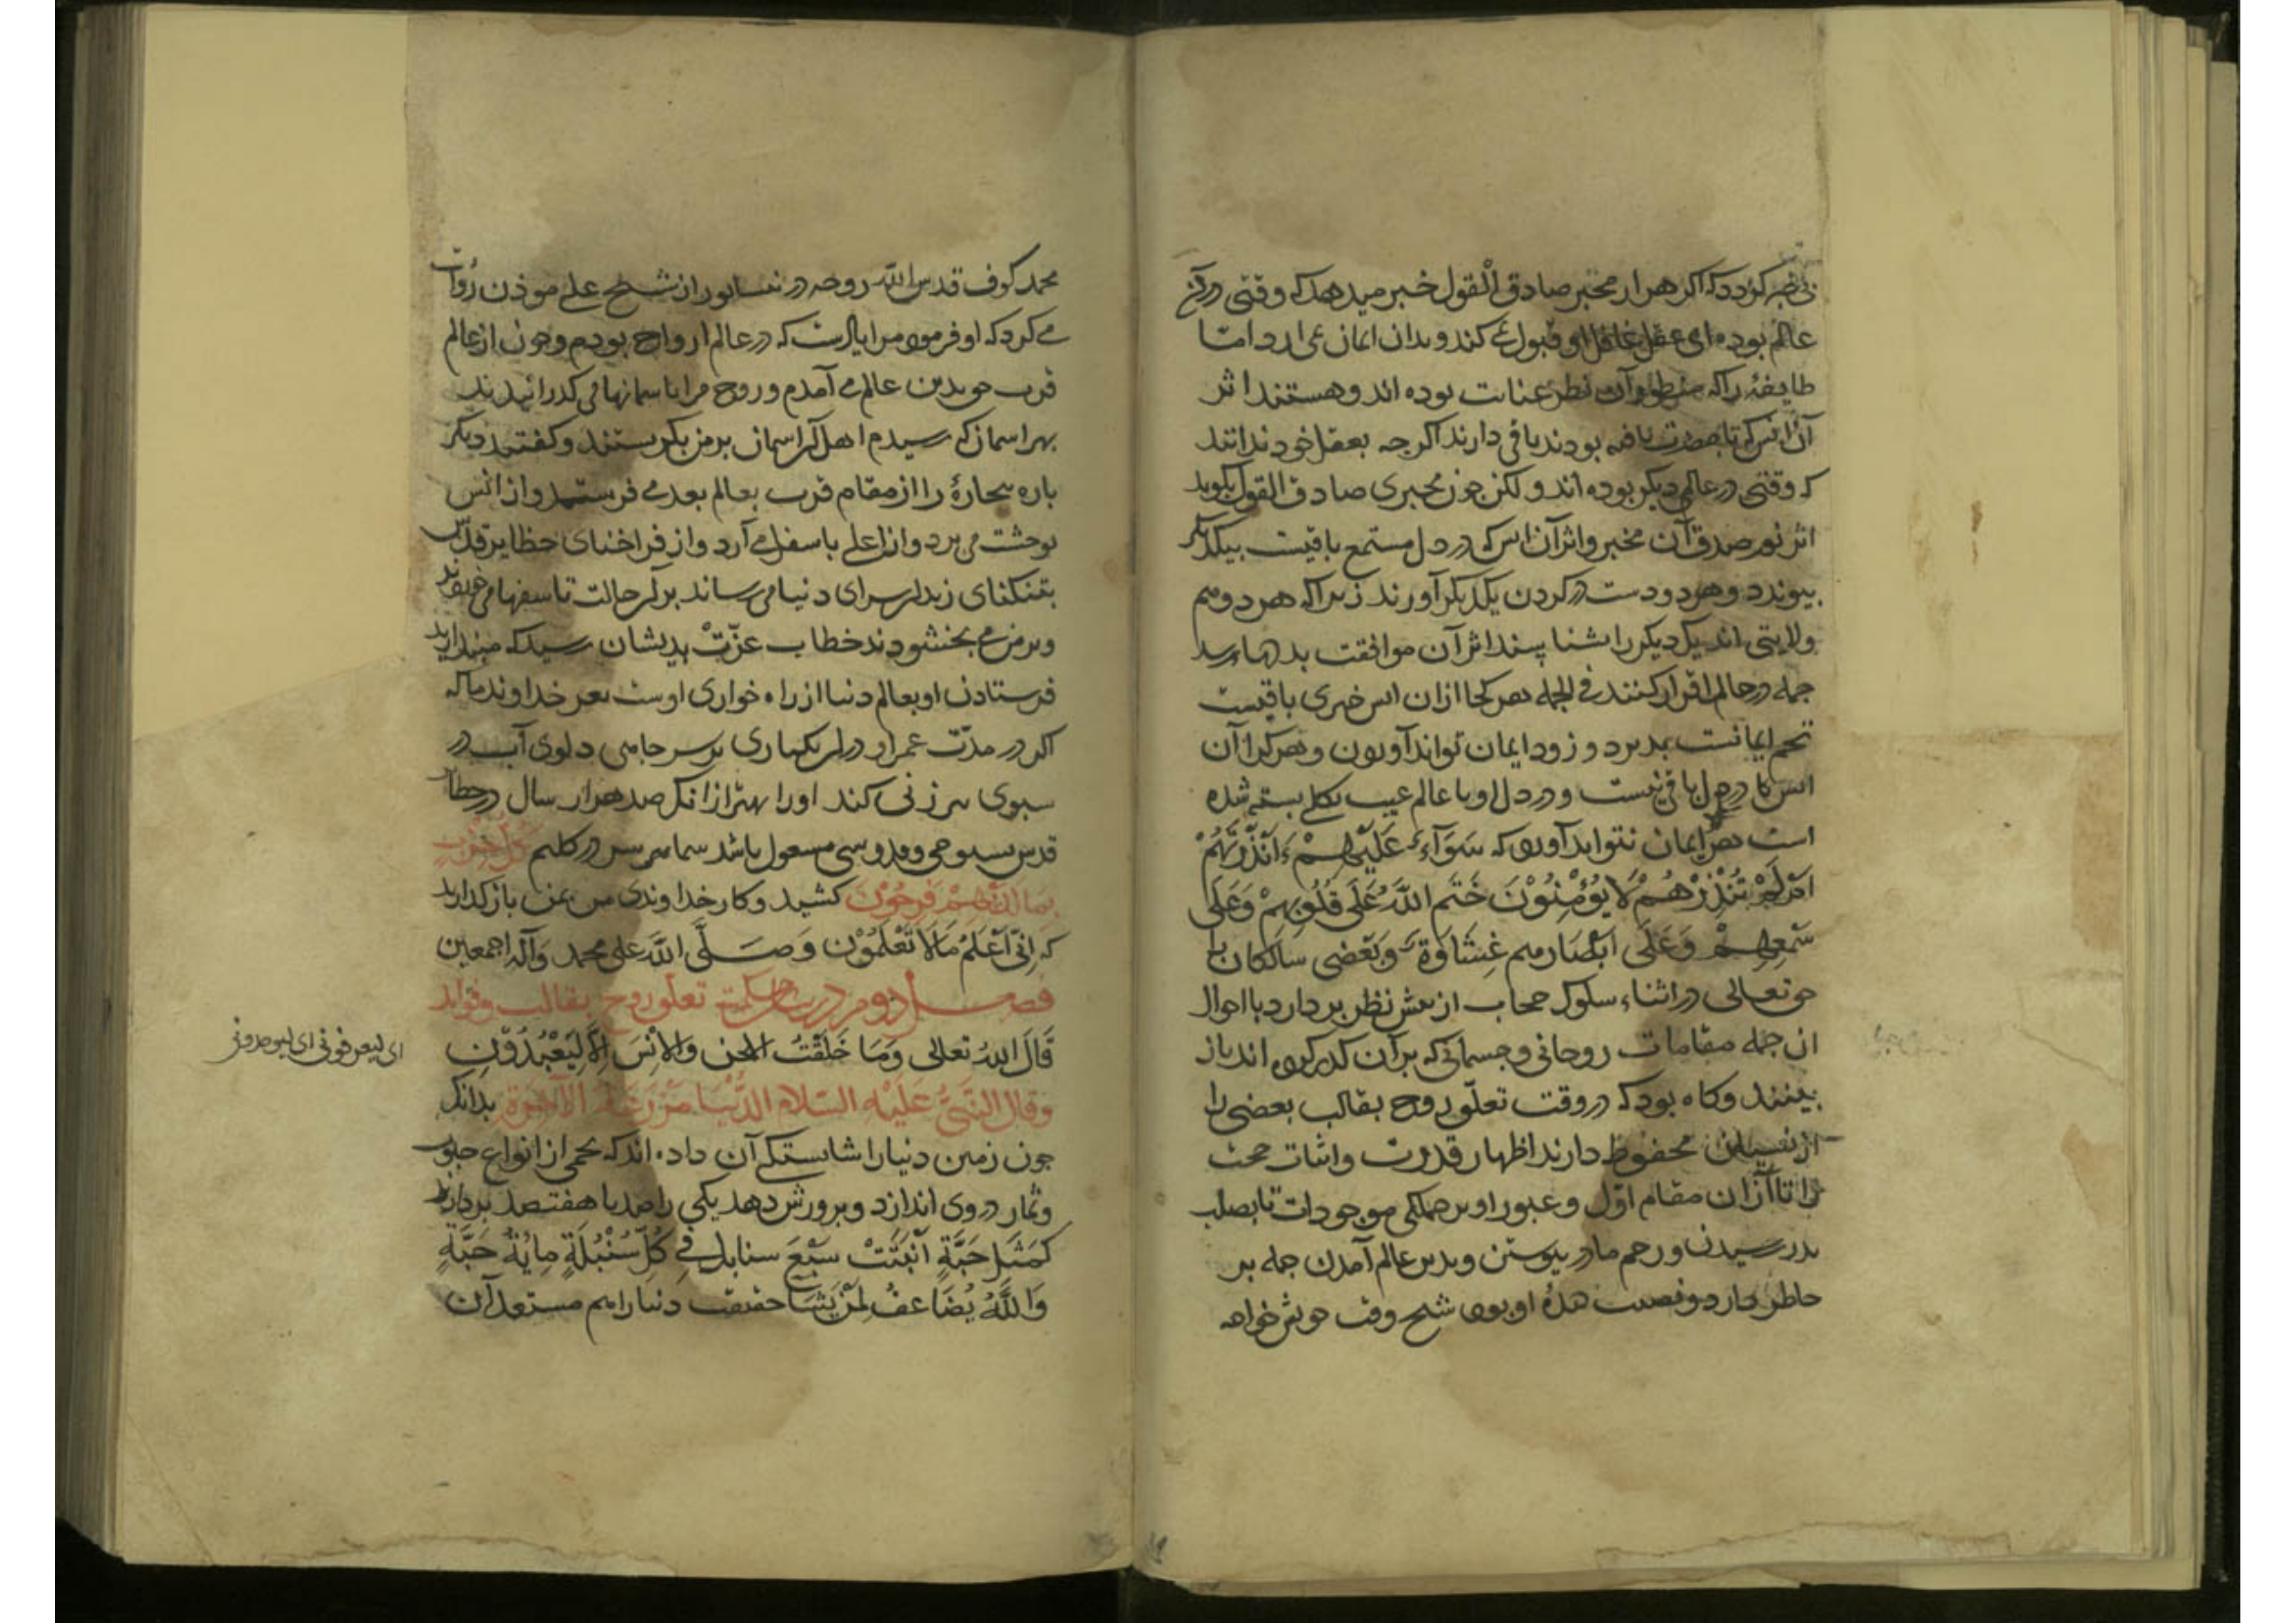 که اکر هزار مخبر صادق القول خبر میدهد که وقتی در آن
عالم بوده ای عقل غافل او قبول نمی کند و بدان ایمان نمی ارد اما
طایفۀ را که منظور آن نظر عنایت بوده اند و هستند اثر
آن انس که با حضرت یافته بودند باقی دارند اکرجه بعقل خود ندانند
که وقتی در عالمی دیکر بوده اند و لکن جون مخبری صادق القول بکوید
اثر نور صدق آن مخبر و اثر آن انس که در دل مستمع باقیست بیکدیکر
بیوندد و هر دو دست در کردن یکدیکر آورند زیرا که هر دو هم
ولایتی اند یکدیکر را بشناسند اثر آن موافقت بدلها رسد
جمله در حال اقرار کنند فی الجمله هر کجا ازان انس خبری باقیست
تخم ایمانست بدیر و زود ایمان تواند آوردن و هر کرا آن
انس در دل باقی نیست و در دل او با عالم غیب بکلی بسته شده
است هرکز ایمان نتواند آورد که سَوَآءٌ عَلَیْهِمْ ءَاَنْذَرْتَهُمْ
اَمْ لَمْ تُنْذِرْهُمْ لَا یُؤْمِنُوْنَ خَتَمَ اللّٰهُ عَلَی قُلُوبِهِمْ وَعَلَی
سَمْعِهِمْ وَعَلَی اَبْصَارِهِم غِشَاوَةٌ وَبَعْضی سالکان را
حق تعالی در اثناء سلوک حجاب از بیش نظر بردارد با احوال
ان جمله مقامات روحانی و جسمانی که بر آن کذر کرده اند باز
بینند وکاه بود که در وقت تعلّق روح بقالب بعضی را
از نسیان محفوظ دارند اظهار قدرت و اثبات حجت
را تا ازان مقام اوّل و عبور او بر جملکی موجودات تا بصلب
بدر رسیدن و رحم مادر بیوستن و بدین عالم آمدن جمله بر
خاطر دارد و نصب دیدۀ او بود شیخ وقت خویش خواجه
محمد کوف قدس الله روحه در نسابور از شیخ علی موذن روایت
می کرد که او فرمود مرا یادست که در عالم ارواح بودم و جون از عالم
قرب حق بدین عالم می آمدم و روح مرا باسمانها می کذرانیدند
بهر اسمان که رسیدم اهل آن اسمان بر من بکریستند و کفتند دیکر
باره بیجارۀ را از مقام قرب بعالم بعد می فرستند و از انس
بوحشت می برد و از اعلی باسفل می آرد و از فراخنای حظایر قدس
بتنکنای زندان سرای دنیا می رساند بر آن حالت تاسفها می خوردند
و بر من می بخشودند خطاب عزّتْ بدیشان رسید که مبندارید
فرستادن او بعالم دنیا از راه خواری اوست بعز خداوندی ما که
اکر در مدّت عمر او در ان یکباری بر سر جاهی دلوی آب در
سبوی بیرزنی کند او را بهتر از انک صد هزار سال در حظایر
قدس بسبوحی و قدوسی مشغول باشد شما سر در کلیم کُلُّ حِزْبٍ
بِمَا لَدَیْهِمْ فَرِحُوْنَ کشید و کار خداوندی من بمن باز کذارید
که اِنِّی اَعْلَمُ مَالَا تَعْلَمُوْن وَصَلَّی اللّٰهُ علی محمد وَآلِه اجمعین
فصل دوم در بیان حکمت تعلق روح بقالب و فواید
قَالَ اللهُ تعالی وَمَا خَلَقْتُ الْجن وَالْانْسَ اِلَّا لِیَعْبُدُوْنِ
ای لیعرفونی ای لیوحدونی
وقال النَّبیُّ عَلَیْهِ السَّلام الدُّنْیَا مَزْرَعَةُ الْآخِرَةِ بدانک
جون زمین دنیا را شایستکی آن داده اند که تخمی از انواع حبوب
و ثمار در وی اندازد و برورش دهد یکی را صد یا هفتصد بردارند
کَمَثَلِ حَبَّةٍ اَنْبَتَتْ سَبْعَ سنابل فِی کُلِّ سُنْبُلَةٍ مِایَةُ حَبَّةٍ
وَاللّٰهُ یُضَاعِفُ لِمَنْ یَشَآ حقیقت دنیا را هم مستعد آن